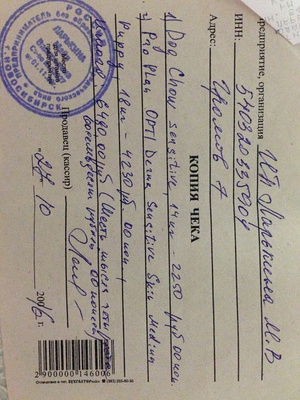 предприятие, организация ИП Ларькина М.В
ИНН: 540320335904
Адрес: Громова 7
КОПИЯ ЧЕКА
1) Dog Chow sensitive, 14 кг - 2250 руб 00 коп.
2) Pro Plan OPTI Derma Sensitive Skin Medium
Puppy 18 кг - 4230 руб. 00 коп.
6480.00 руб (Шесть тысяч четыреста
восемьдесят рублей 00 копеек)
Продавец (кассир)
"27" 10 2016 г.
2 900000 146006